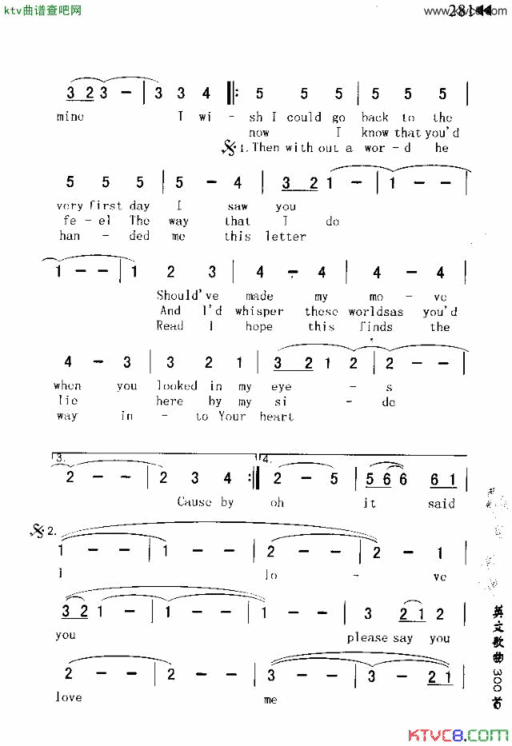 ktv曲谱查吧网
www.ktvc8.com
281◀◀
3 2 3 – | 3 3 4 |: 5 5 5 | 5 5 5 |
mine I wi - sh I could go back to the
now I know that you'd
1. Then with out a wor-d he
5 5 5 | 5 - 4 | 3 2 1 - | 1 - - |
very first day I saw you
fe-el The way that I do
han - ded me this letter
1 - - | 1 2 3 | 4 - 4 | 4 - 4 |
Should've made my mo - ve
And I'd whisper these worldsas you'd
Read I hope this finds the
4 - 3 | 3 2 1 | 3 2 1 2 | 2 - - |
when you looked in my eye - s
lie here by my si - de
way in - to Your heart
3. 4.
2 - - | 2 3 4 :| 2 - 5 | 5 6 6 6 1 |
Cause by oh it said
2.
1 - - | 1 - - | 2 - - | 2 - 1 |
I lo - ve
3 2 1 - - | 1 - - | 1 - - | 3 2 1 2 |
you please say you
2 - - | 2 - - | 3 - - | 3 - 2 1 |
love me
英文歌曲300首
KTVC8.com